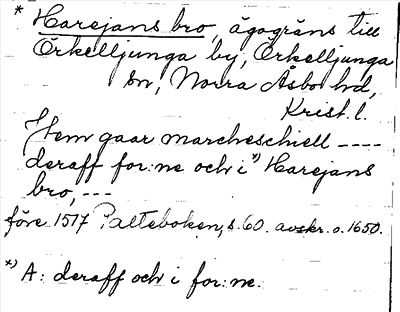 * Harejans bro, ägogräns till
Örkelljunga by, Örkelljunga
sn, Norra Åsbo hd,
Krist. l.
Jtem gaar marcheschiell ----
deraff for:ne och i *) Harejans
bro, ---
före 1517 Palteboken, s. 60. avskr. o. 1650.
*) A: deraff och i for:ne.